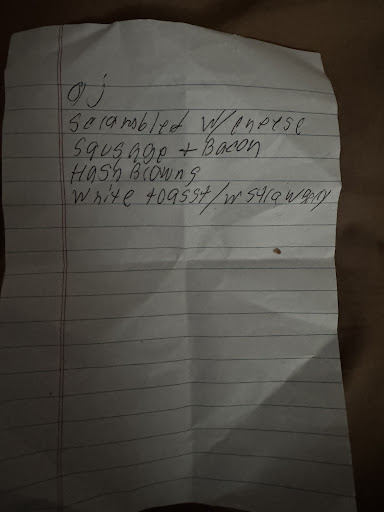 OJ
Scrambled w/cheese
Sausage + Bacon
Hash Browns
White toasst/w strawberry